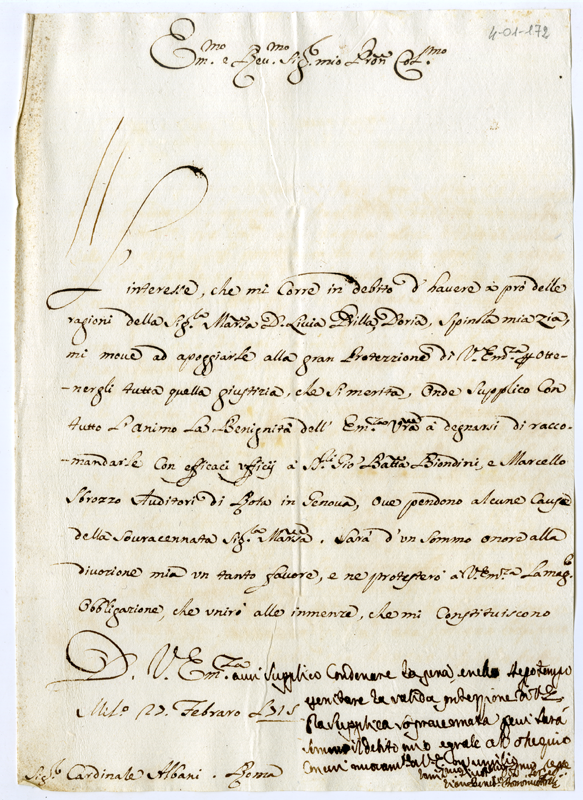 4-01-172
Em.mo e Rev.mo Sig.r mio Pron Col.mo
L'interesse, che mi corre in debito d'havere à prò delle
ragioni della Sig.ra March.sa D. Livia Grilla Doria, Spinola mia Zia,
mi move ad apoggiarle alla gran Protezzione di V. Em.za p otte-
-nergli tutta quella giustizia, che si merita, Onde Supplico Con
tutto L'animo La Benignità dell' Em.za Vra à degnarsi di racco-
-mandarle Con efficaci Vfficij à Gio Batta Biondini, e Marcello
Sbrozzo Auditori di Rota in Genova, Ove pendono alcune Cause
della Souracennata Sig.ra March.sa. Sarà d'un Sommo onore alla
divozione mia vn tanto favore, e ne protesterò à V. Em.za La mag.e
Obbligazione, che vnirò alle immenze, che mi Constituiscono
D. V. Em.za Supplico Condonare la pena, e nello stesso tempo
Mil.o 27. Febraro 1715 la valida protezzione di V. E.
la Supplica
il debito mio eguale all'Ossequio
Sig.r Cardinale Albani. Roma